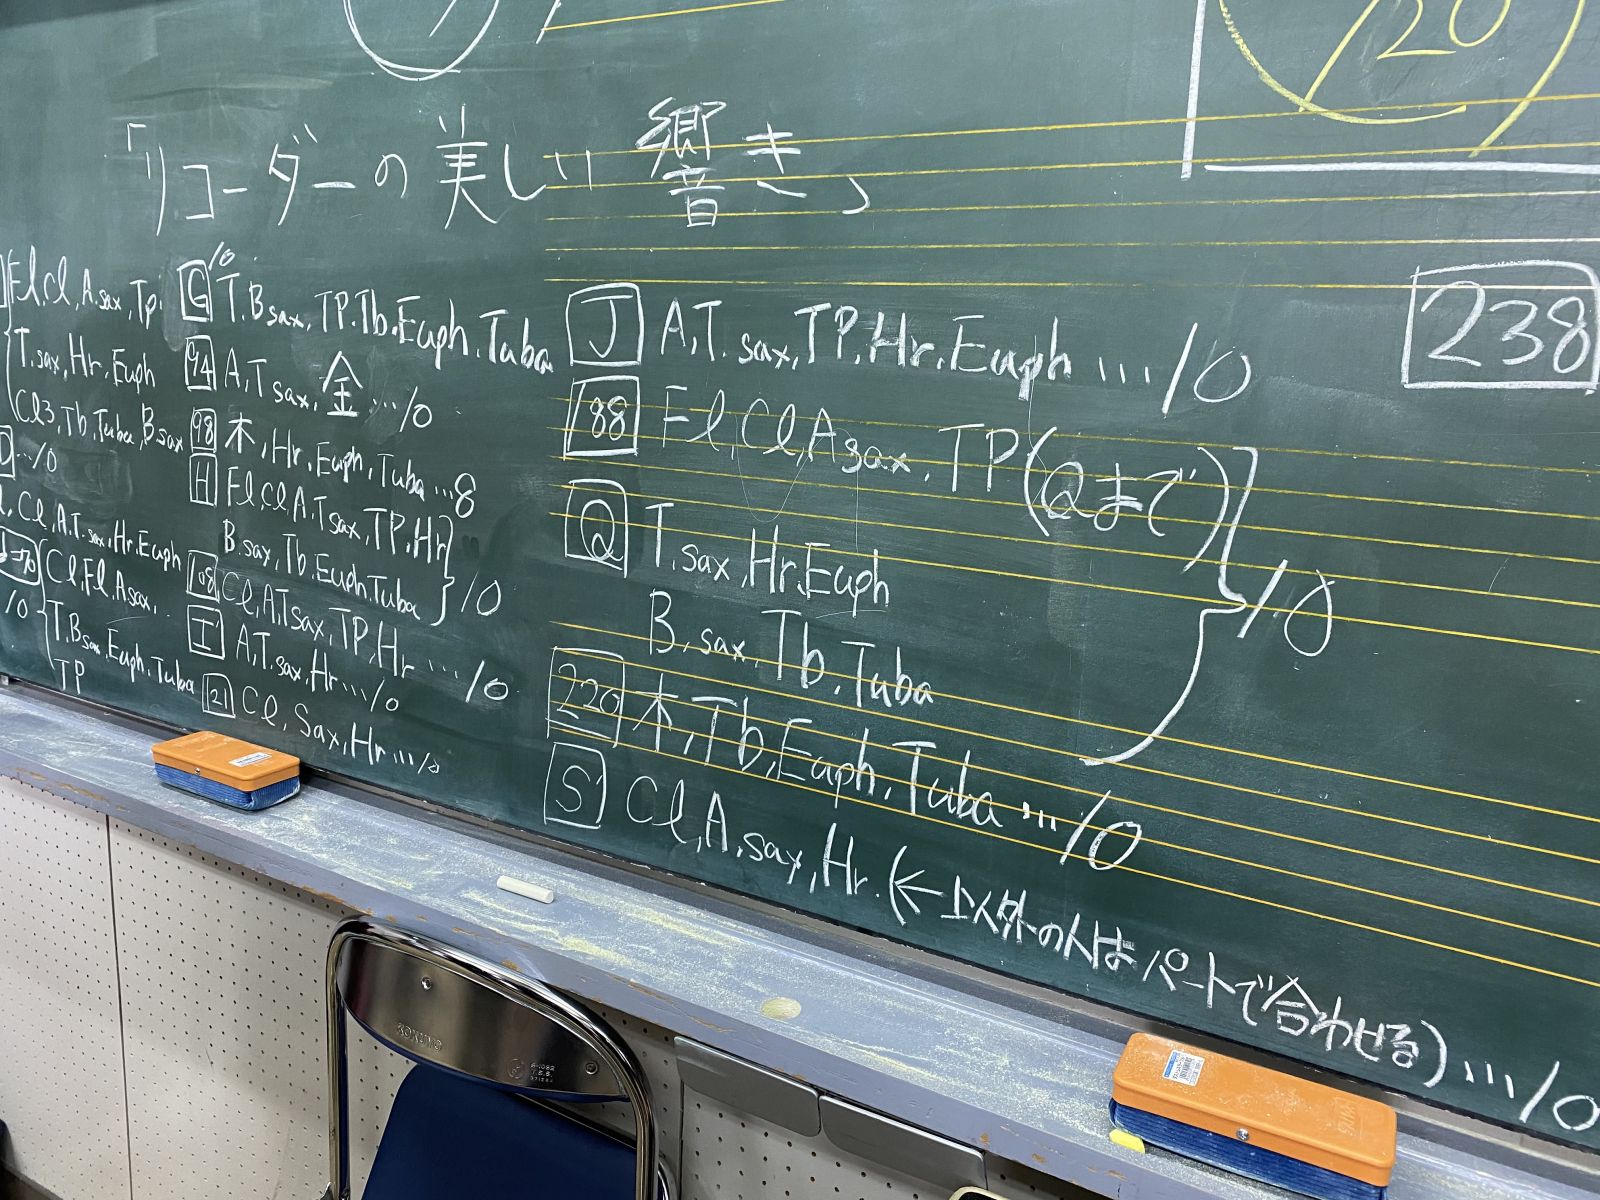 20
「リコーダーの美しい響き」
Fl,Cl,A.sax,Tp.
T.sax,Hr,Euph
Cl3,Tb,Tuba,B.sax
D …10
Cl,A,T.sax,Hr,Euph
Cl,Fl,A.sax,
10
T.B.sax,Euph.Tuba
TP
G 10 T.B.sax,TP.Tb.Euph.Tuba
94 A,T sax,金…10
98 木,Hr,Euph,Tuba…8
H Fl,Cl,A,T sax,TP,Hr
B.sax,Tb.Euph.Tuba 10
108 Cl,A,T sax,TP,Hr…10
I A,T.sax,Hr…10
121 Cl,Sax,Hr…10
J A,T.sax,TP,Hr.Euph…10
188 Fl,Cl,A sax.TP(Qまで)
Q T.sax,Hr.Euph
10
B.sax,Tb.Tuba
220 木,Tb,Euph,Tuba…10
S Cl,A.sax,Hr.(←以外の人はパートで合わせる)…10
238
KOKUYO